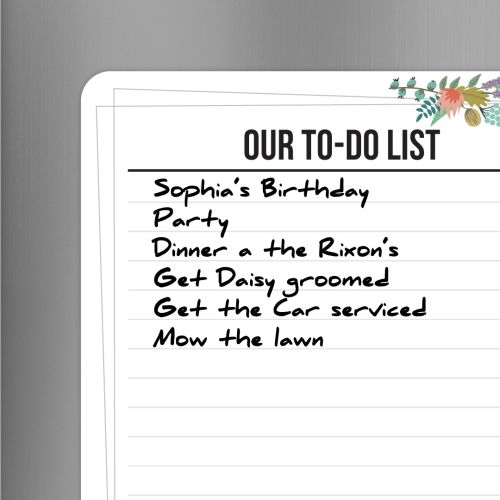 OUR TO-DO LIST
Sophia's Birthday
Party
Dinner a the Rixon's
Get Daisy groomed
Get the Car serviced
Mow the lawn